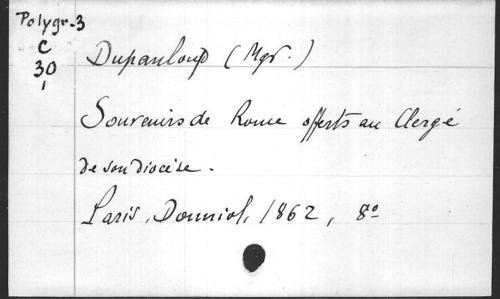 Polygr. 3
C
30
1
Dupanloup (Mgr.)
Souvenirs de Rome offerts au Clergé
de son diocèse.
Paris, Douniol, 1862, 8º